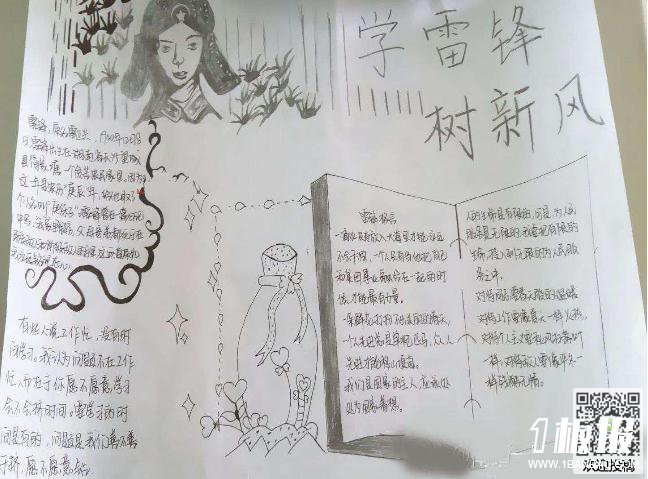 学雷锋
树新风
雷锋,原名雷正兴,1940年12月18
日雷锋出生在湖南
有些人说工作忙,没有时
间学习。我认为问题不在工作
忙,而在于你愿不愿意学习
会不会挤时间。要学习的时
间是有的,问题是我们善不善
于挤,愿不愿意钻。
雷锋名言
一滴水只有放入大海里才能永远
不会干涸,一个人只有当他把自己
和集体事业融合在一起的时
候才能最有力量。
一朵鲜花打扮不出美丽的春天,
一个人先进总是单枪匹马,众人
先进才能移山填海。
我们是国家的主人,应该处
处为国家着想。
人的生命是有限的,可是,为人民
服务是无限的,我要把有限的
生命,投入到无限的为人民服
务之中。
对待同志要像春天般的温暖
对待工作要像夏天一样火热
对待个人主义要像秋风扫落叶
一样,对待敌人要像严冬一
样残酷无情。
1板报
WWW.1BANBAO.COM
欢迎投稿